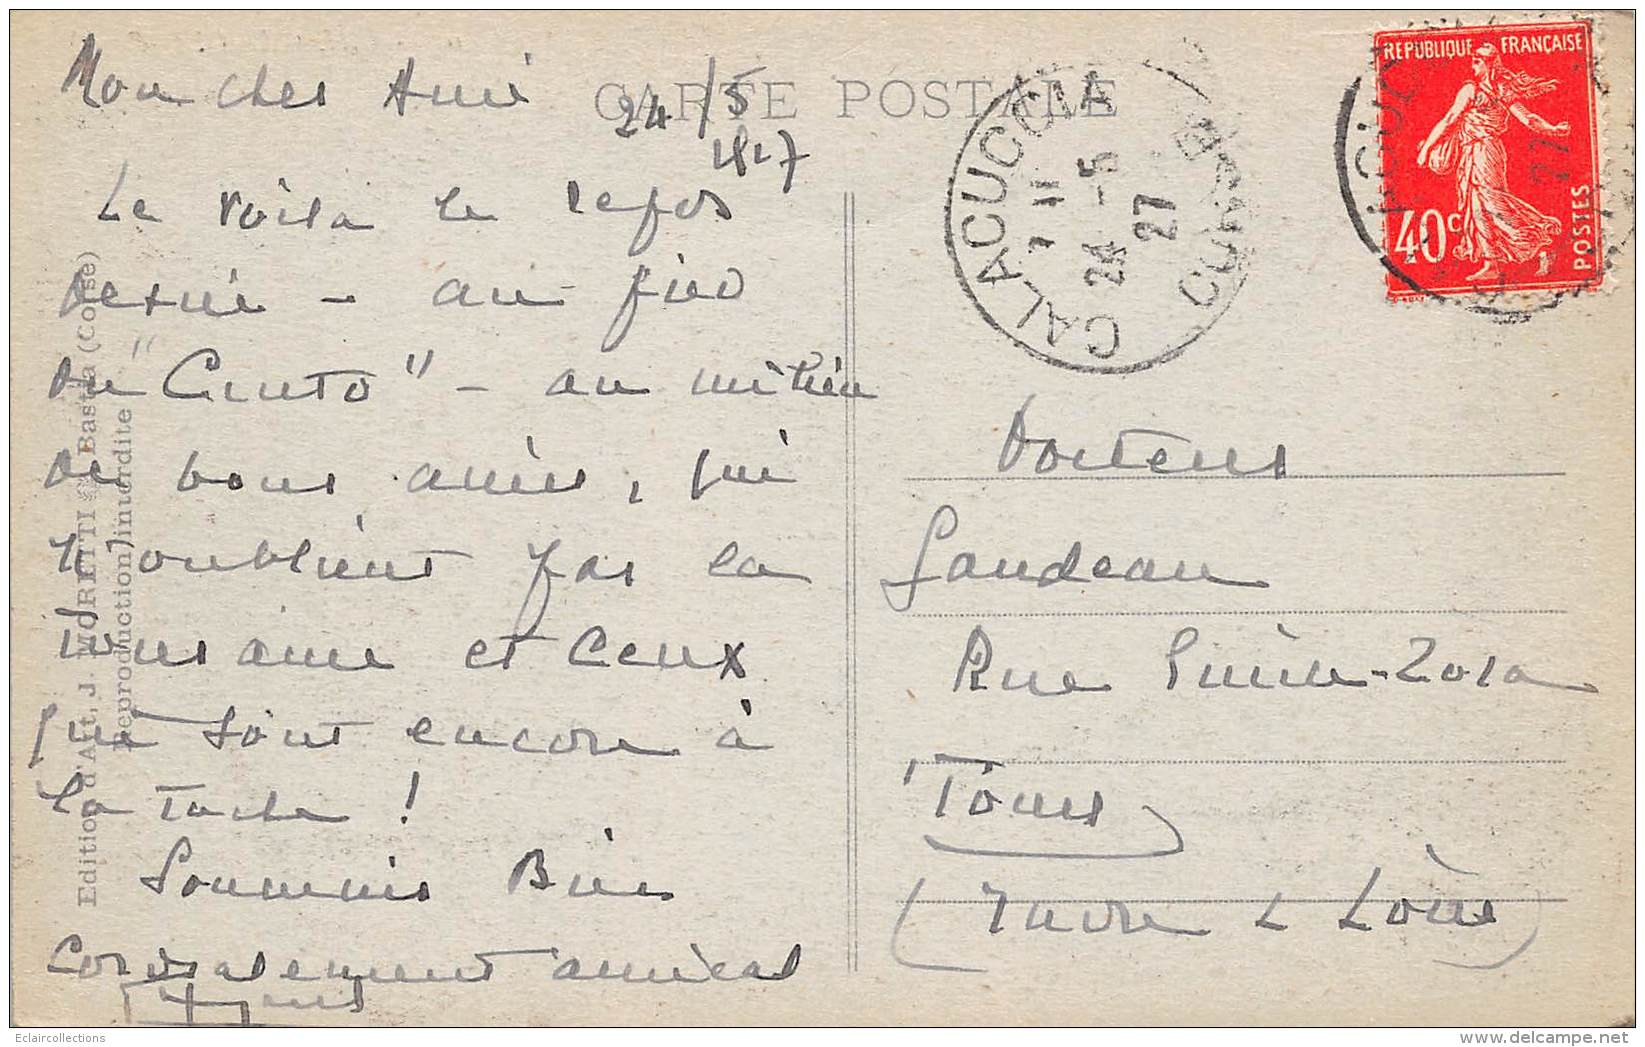 CARTE POSTALE
Mon cher Ami
24/5
1927
Le voila le repos
désiré - au pied
du "Cinto" - au milieu
de bons amis, qui
n'oublient pas la
Tousaine et ceux
qui sont encore à
la Tache !
Souvenirs Bien
Cordialement amical
Edition d'Art, J. MORETTI Bastia (Corse)
Reproduction interdite
CALACUCCIA
7 11
24 -5
27
CORSE
REPUBLIQUE FRANÇAISE
40c
POSTES
Docteur
Gaudeau
Rue Emile-Zola
Tours
(Indre & Loire)
Eclaircollections
delcampe.net